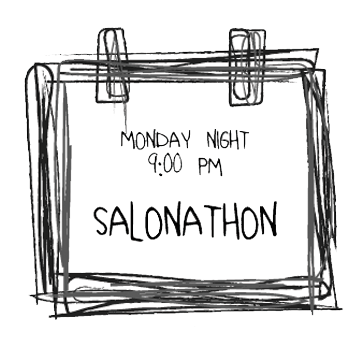 MONDAY NIGHT
9:00 PM
SALONATHON